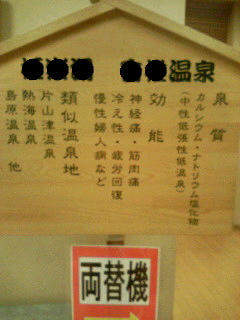 温泉
泉質
カルシウム・ナトリウム塩化物
(中性低張性低温泉)
効能
神経痛・筋肉痛
冷え性・疲労回復
慢性婦人病など
類似温泉地
片山津温泉
熱海温泉
島原温泉 他
両替機